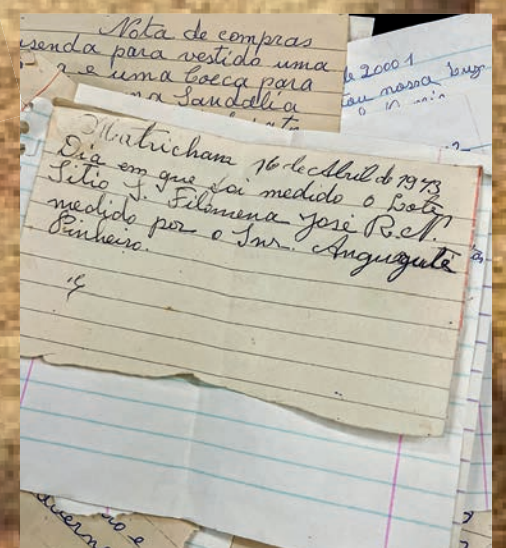 Nota de compras
para vestido uma
e uma boeça para
Sandália
de 2000
nossa
Matricham 16 de Abril de 1973
Dia em que foi medido o Lote
Sitio S. Filomena José R. N.
medido por o Snr.
Pinheiro.
e